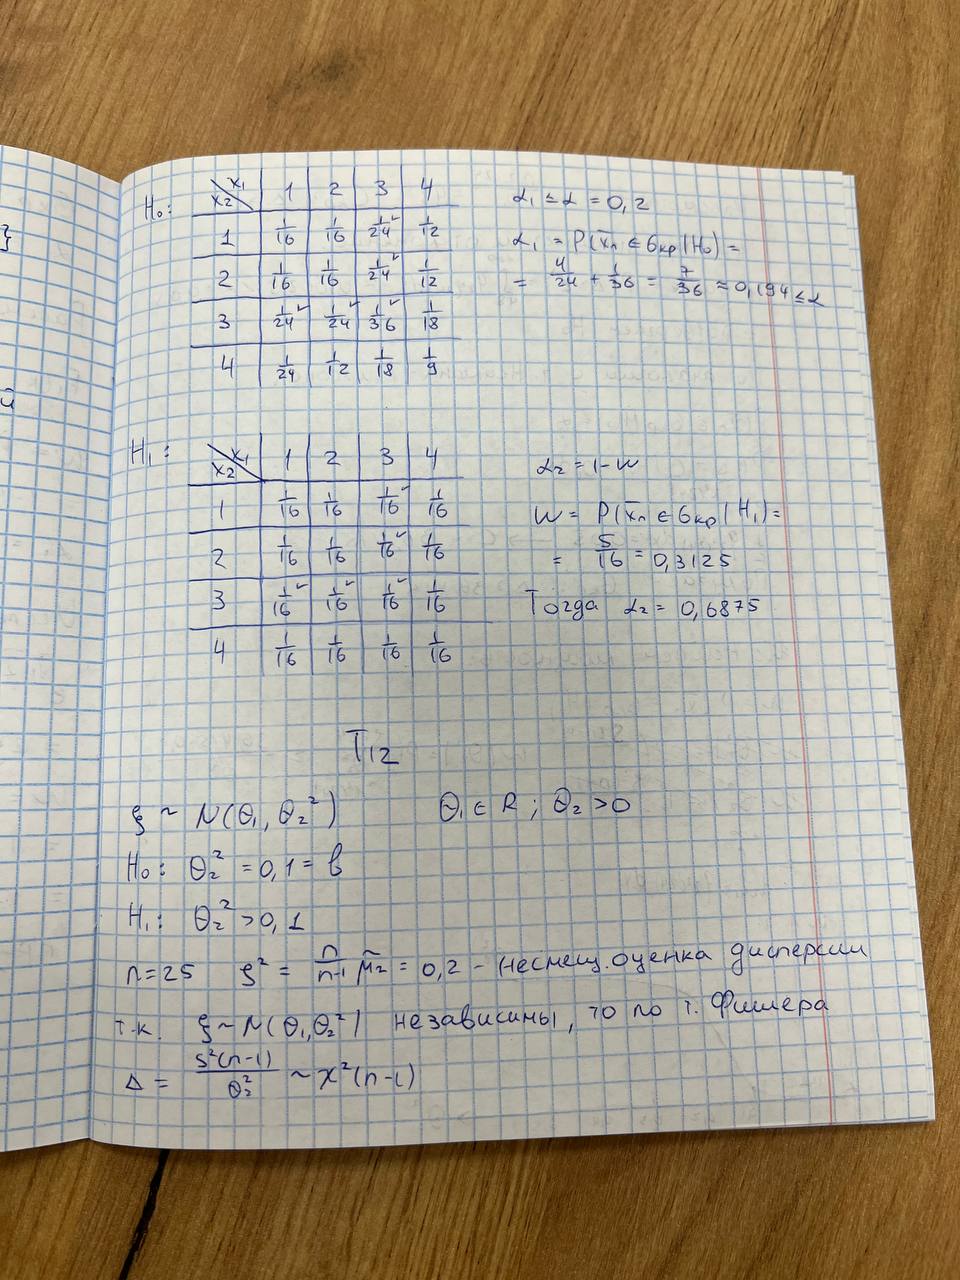 }
й
H₀: x₁ 1 2 3 4
x₂
1 1/16 1/16 1/24 ✓ 1/12
2 1/16 1/16 1/24 ✓ 1/12
3 1/24 ✓ 1/24 ✓ 1/36 ✓ 1/18
4 1/24 1/12 1/18 1/9
α₁ ≤ α = 0,2
α₁ = P(x̄ₙ ∈ Gкр | H₀) =
= 4/24 + 1/36 = 7/36 ≈ 0,194 ≤ α
H₁: x₁ 1 2 3 4
x₂
1 1/16 1/16 1/16 ✓ 1/16
2 1/16 1/16 1/16 ✓ 1/16
3 1/16 ✓ 1/16 ✓ 1/16 ✓ 1/16
4 1/16 1/16 1/16 1/16
α₂ = 1-W
W = P(x̄ₙ ∈ Gкр | H₁) =
= 5/16 = 0,3125
Тогда α₂ = 0,6875
T12
ξ ~ N(θ₁, θ₂²) θ₁ ∈ R ; θ₂ > 0
H₀: θ₂² = 0,1 = b
H₁: θ₂² > 0,1
n=25 S² = n/(n-1) μ̃₂ = 0,2 - несмещ. оценка дисперсии
т.к. ξ ~ N(θ₁, θ₂²) независимы, то по т. Фишера
Δ = S²(n-1)/θ₂² ~ χ²(n-1)